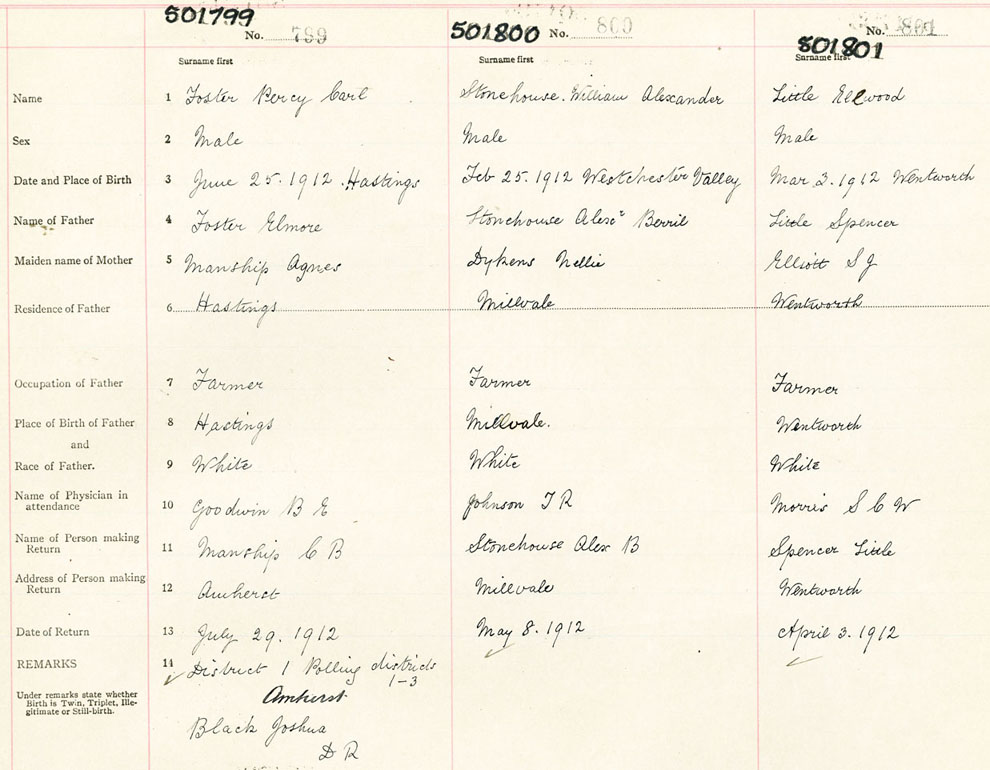 501799 501800 501801
No. 799 No. 800 No. 801
Surname first Surname first Surname first
Name 1 Foster Percy Carl Stonehouse. William Alexander Little Ellwood
Sex 2 Male Male Male
Date and Place of Birth 3 June 25. 1912. Hastings Feb 25. 1912 Westchester Valley Mar 3. 1912 Wentworth
Name of Father 4 Foster Elmore Stonehouse Alexr Berril Little Spencer
Maiden name of Mother 5 Manship Agnes Dykens Nellie Elliott S J
Residence of Father 6 Hastings Millvale Wentworth
Occupation of Father 7 Farmer Farmer Farmer
Place of Birth of Father 8 Hastings Millvale. Wentworth
and
Race of Father. 9 White White White
Name of Physician in
attendance 10 Goodwin B E Johnson T R Morris S C W
Name of Person making
Return 11 Manship C B Stonehouse Alex B Spencer Little
Address of Person making
Return 12 Amherst Millvale Wentworth
Date of Return 13 July 29. 1912 May 8. 1912 April 3. 1912
REMARKS 14 District 1 Polling districts
1-3
Under remarks state whether
Birth is Twin, Triplet, Ille-
gitimate or Still-birth.
Amherst
Black Joshua
D R